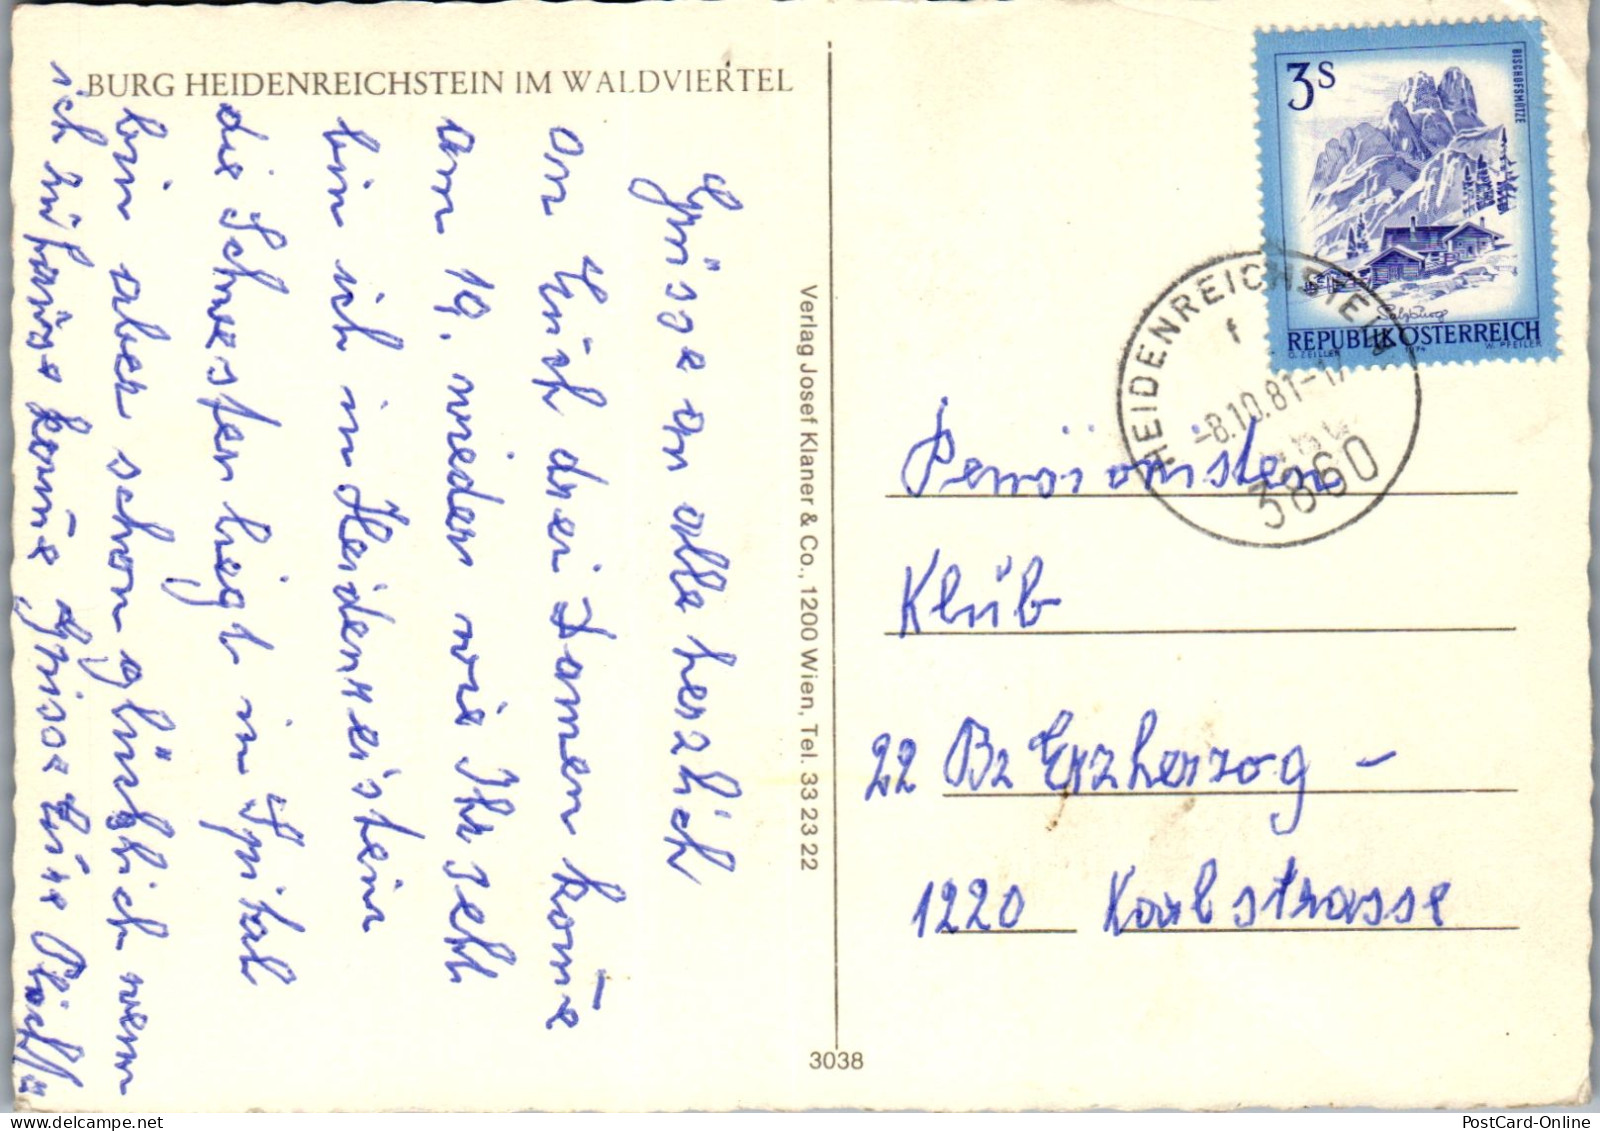 BURG HEIDENREICHSTEIN IM WALDVIERTEL
Grüsse an alle herzlich
an Euch drei Damen kom̄e
am 19. wieder wie Ihr seht
bin ich in Heidenreistein
die Schwester liegt in Spital
bin aber schon glücklich wenn
ich zu hause kom̄e Grüsse Eure
Verlag Josef Klaner & Co., 1200 Wien, Tel. 33 23 22
3038
3S
BISCHOFSMÜTZE
Salzburg
REPUBLIK ÖSTERREICH
O. ZEILLER 1974 W. PFEILER
HEIDENREICHSTEIN
f
-8.10.81-17
3860
Pensionisten
Klub
22 Bz Erzherzog -
1220 Karlstrasse
PostCard-Online